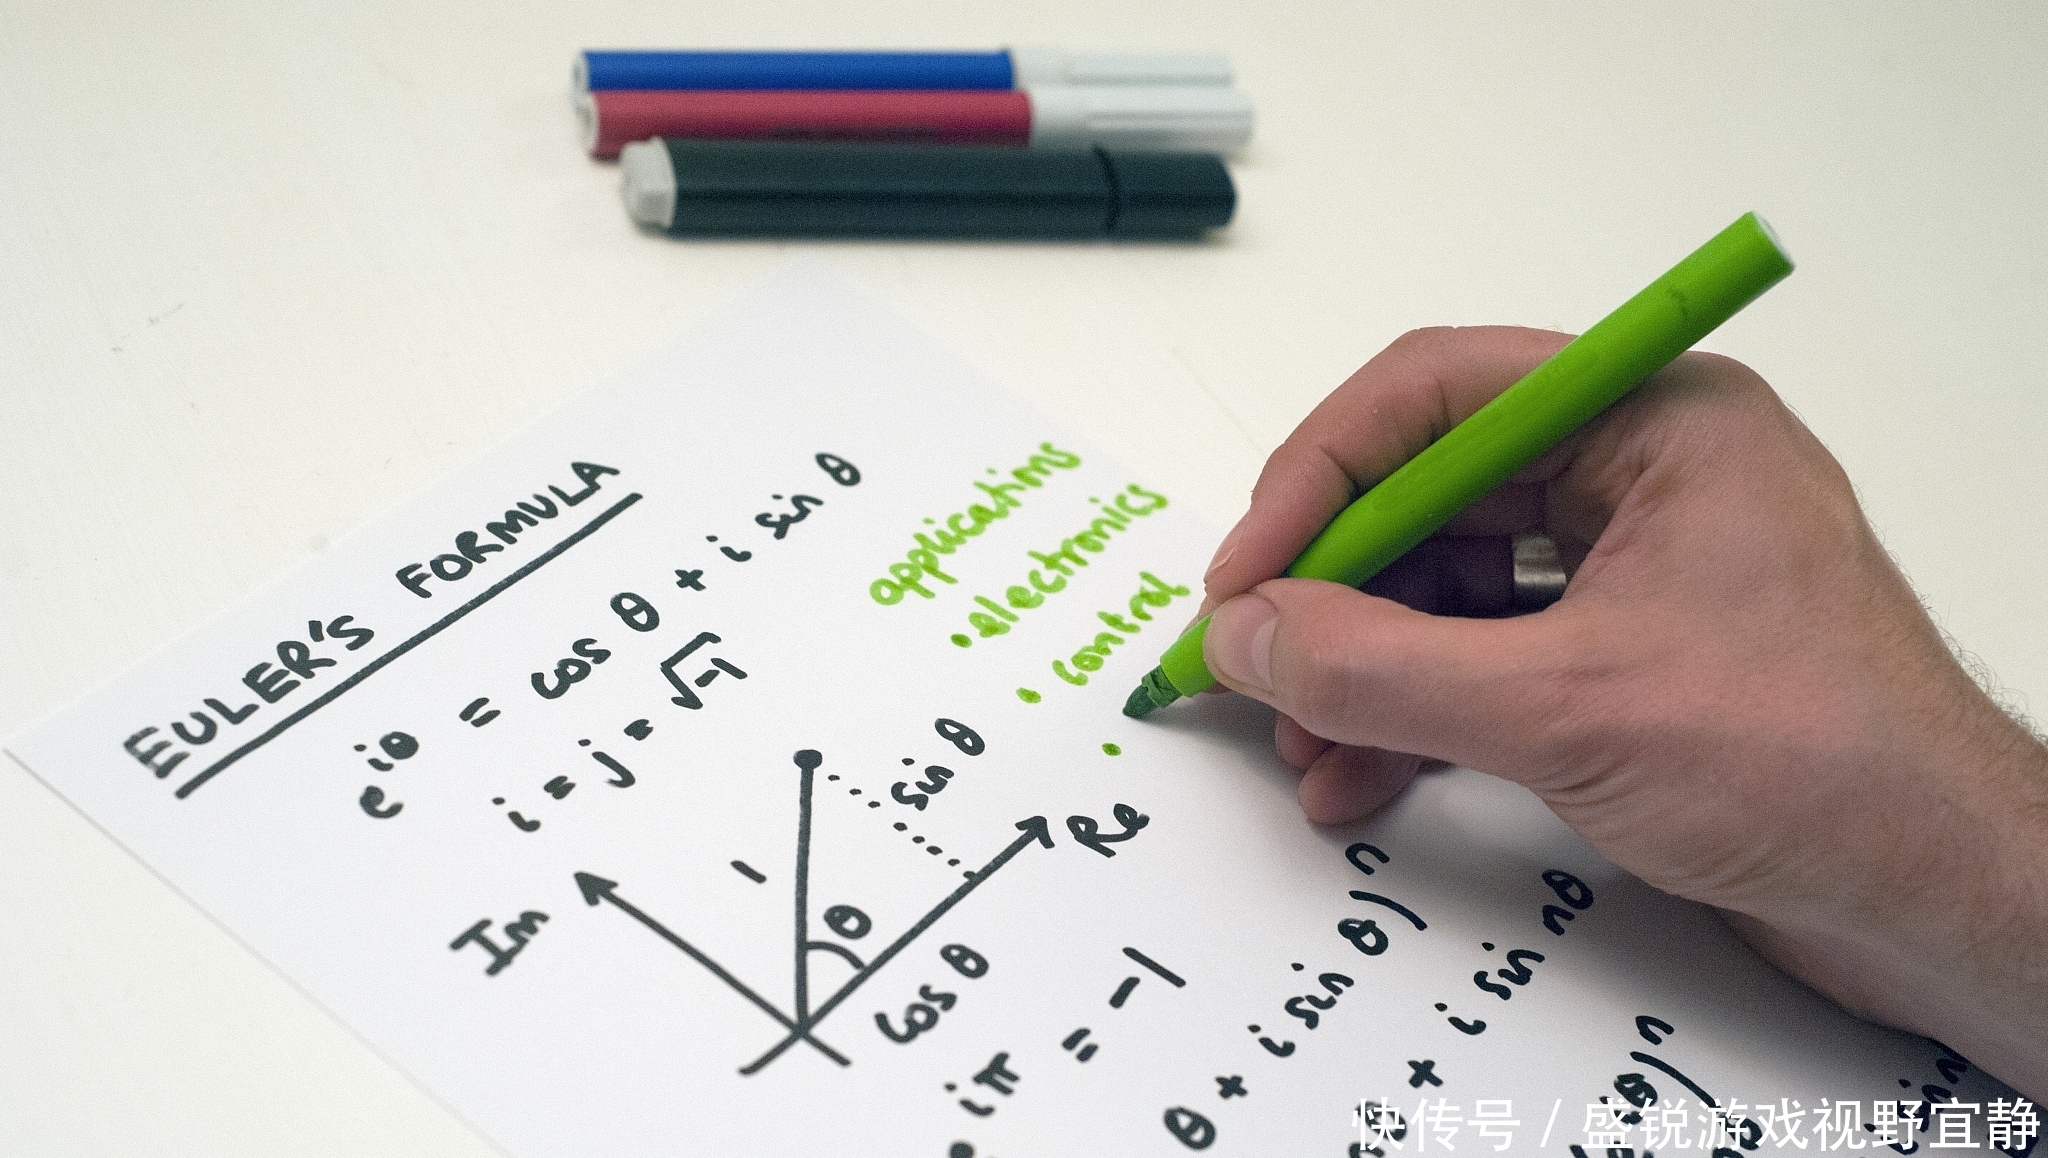 EULER'S FORMULA
e^{iθ} = cos θ + i sin θ
i = j = √-1
applications
• electronics
• control
•
Im
1
θ
sin θ
Re
cos θ
e^{iπ} = -1
θ + i sin θ)^n
+ i sin nθ
iθ)^n
sin n
快传号 / 盛锐游戏视野宜静